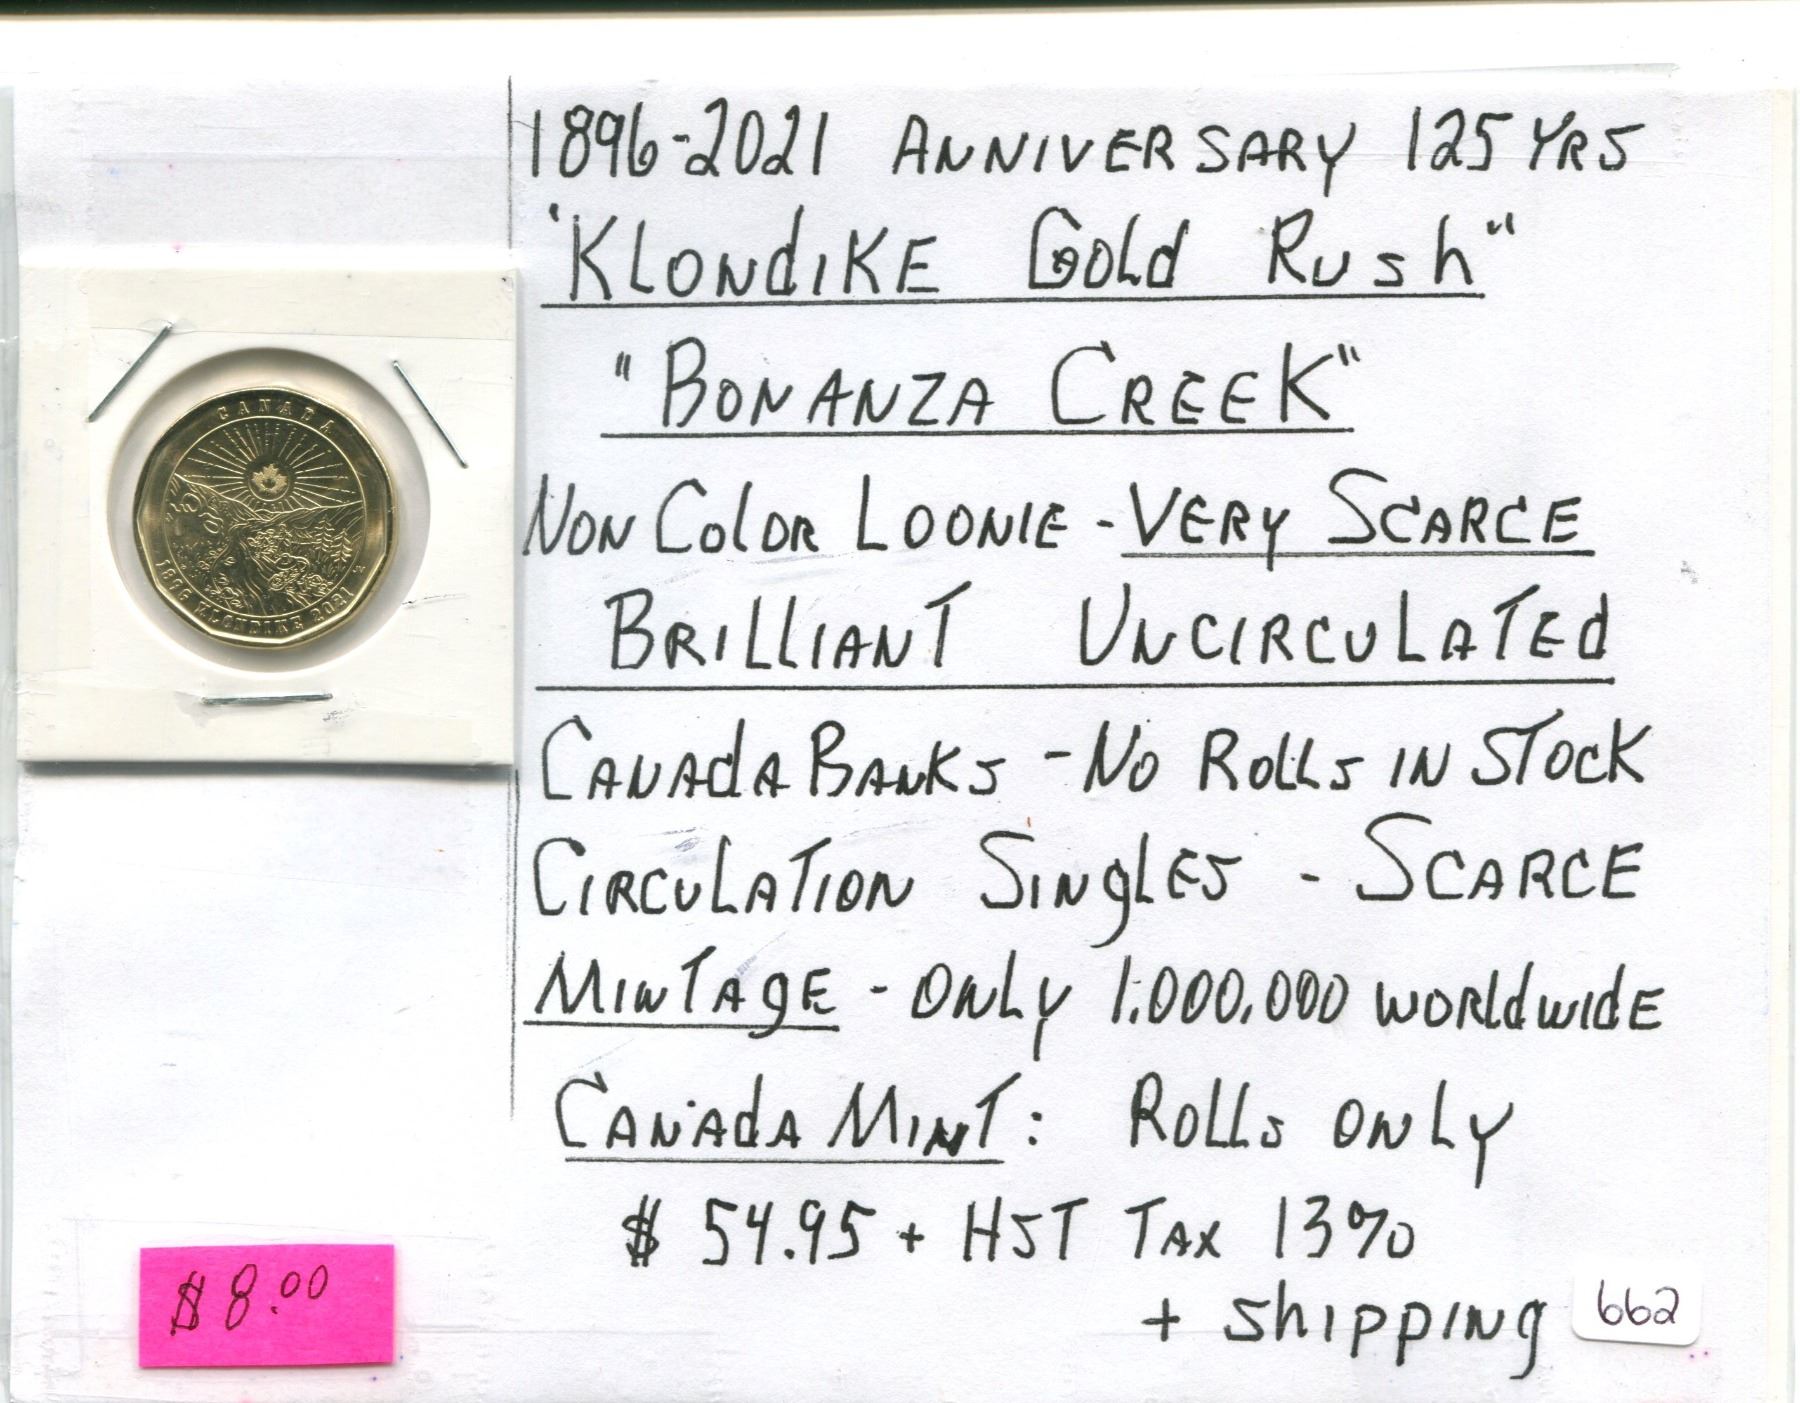 CANADA
1896 KLONDIKE 2021
JV
1896-2021 ANNIVERSARY 125 YRS
'KLONDIKE GOLD RUSH"
"BONANZA CREEK"
NON COLOR LOONIE - VERY SCARCE
BRILLIANT UNCIRCULATED
CANADA BANKS - NO ROLLS IN STOCK
CIRCULATION SINGLES - SCARCE
MINTAGE - ONLY 1,000,000 WORLDWIDE
CANADA MINT: ROLLS ONLY
$ 54.95 + HST TAX 13%
+ SHIPPING
662
$8.00